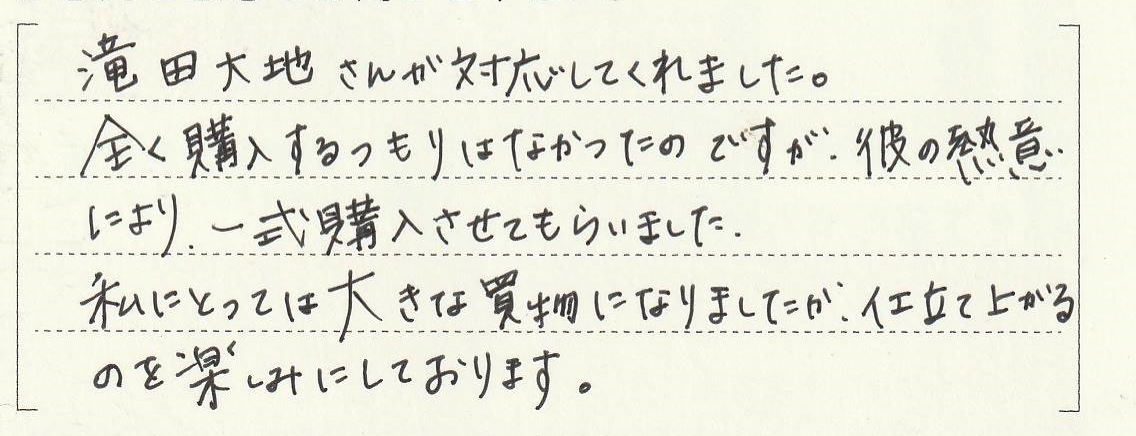 滝田大地さんが対応してくれました。
全く購入するつもりはなかったのですが、彼の熱意
により、一式購入させてもらいました。
私にとっては大きな買物になりましたが、仕立て上がる
のを楽しみにしております。